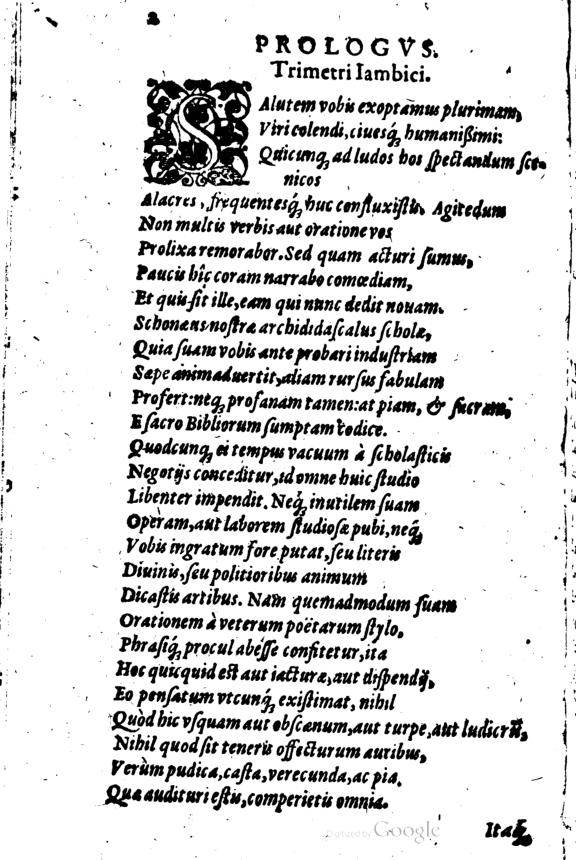 2
PROLOGVS.
Trimetri Iambici.
SAlutem vobis exoptamus plurimam,
Viri colendi, ciuesq́; humanißimi:
Quicunq; ad ludos hos spectandum sce-
nicos
Alacres, frequentesq́; huc confluxistis. Agitedum
Non multis verbis aut oratione vos
Prolixa remorabor. Sed quam acturi sumus,
Paucis hîc coram narrabo comœdiam,
Et quis sit ille, eam qui nunc dedit nouam.
Schonæus nostræ archididascalus scholæ,
Quia suam vobis ante probari industriam
Sæpe animaduertit, aliam rursus fabulam
Profert: neq; profanam tamen: at piam, & sacram,
E sacro Bibliorum sumptam codice.
Quodcunq; ei tempus vacuum à scholasticis
Negotijs conceditur, id omne huic studio
Libenter impendit. Neq́; inutilem suam
Operam, aut laborem studiosæ pubi, neq́;
Vobis ingratum fore putat, seu literis
Diuinis, seu politioribus animum
Dicastis artibus. Nam quemadmodum suam
Orationem à veterum poëtarum stylo,
Phrasiq́; procul abesse confitetur, ita
Hoc quicquid est aut iacturæ, aut dispendij,
Eo pensatum vtcunq́; existimat, nihil
Quòd hic vsquam aut obscænum, aut turpe, aut ludicrũ,
Nihil quod sit teneris offecturum auribus,
Verùm pudica, casta, verecunda, ac pia,
Quæ audituri estis, comperietis omnia.
Itaq́;
Digitized by Google